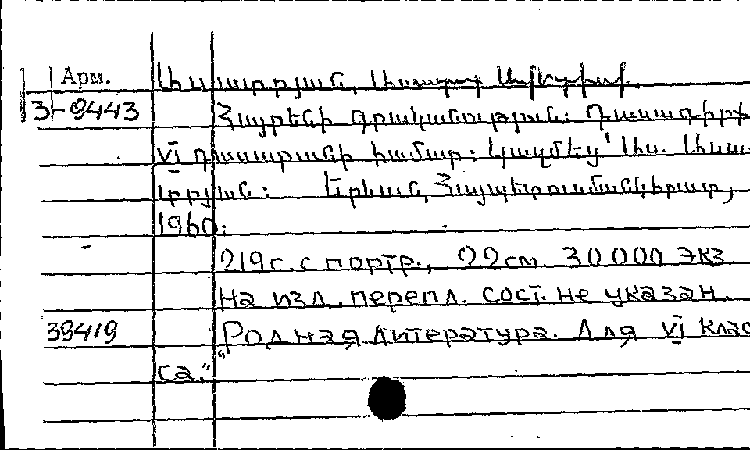 Арм.
3-9443
Հայրենի գրականություն: Դասագիրք
VI դասարանի համար: Կազմեց՝ Աս. Ասա-
տրյան: Երևան, Հայպետուսմանկհրատ,
1960:
219 с. с портр., 22 см. 30 000 экз
На изд. перепл. сост. не указан.
39419 „Родная литература. Для VI клас
са."